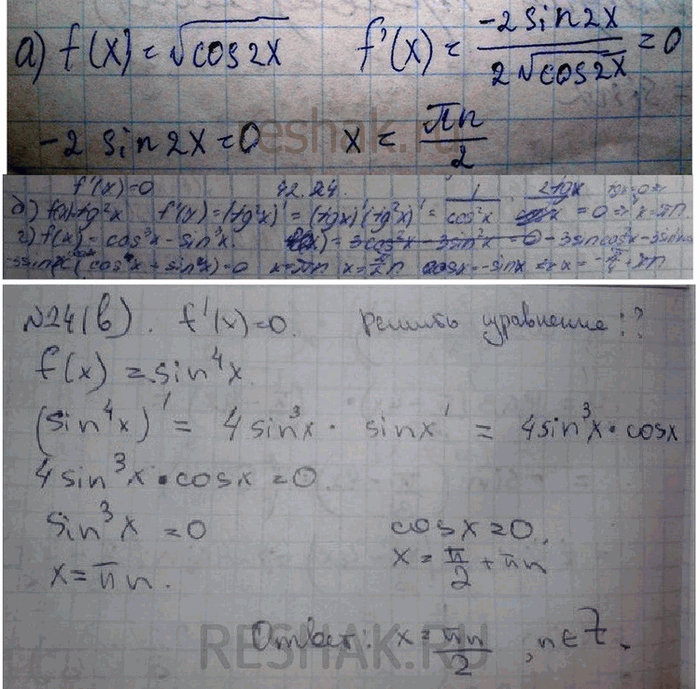 а) f(x) = √cos2x f'(x) = -2 sin 2x / 2√cos2x = 0
-2 sin 2x = 0 x = πn/2
reshak.ru
f'(x) = 0 42.24.
б) f(x) = tg²x f'(x) = (tg²x)' = (tgx)'(tg²x)' = 1/cos²x 2tgx = 0 => x = πn
г) f(x) = cos³x - sin³x.
x = πn x = π/2 n cosx = -sinx x = -π/4 + πn
№24(в). f'(x) = 0. решить уравнение:?
f(x) = sin⁴x.
(sin⁴x)' = 4 sin³x · sinx' = 4sin³x · cosx
4 sin³x · cosx = 0.
sin³x = 0 cosx = 0.
x = πn. x = π/2 + πn
Ответ: x = πn/2, n ∈ Z.
RESHAK.RU